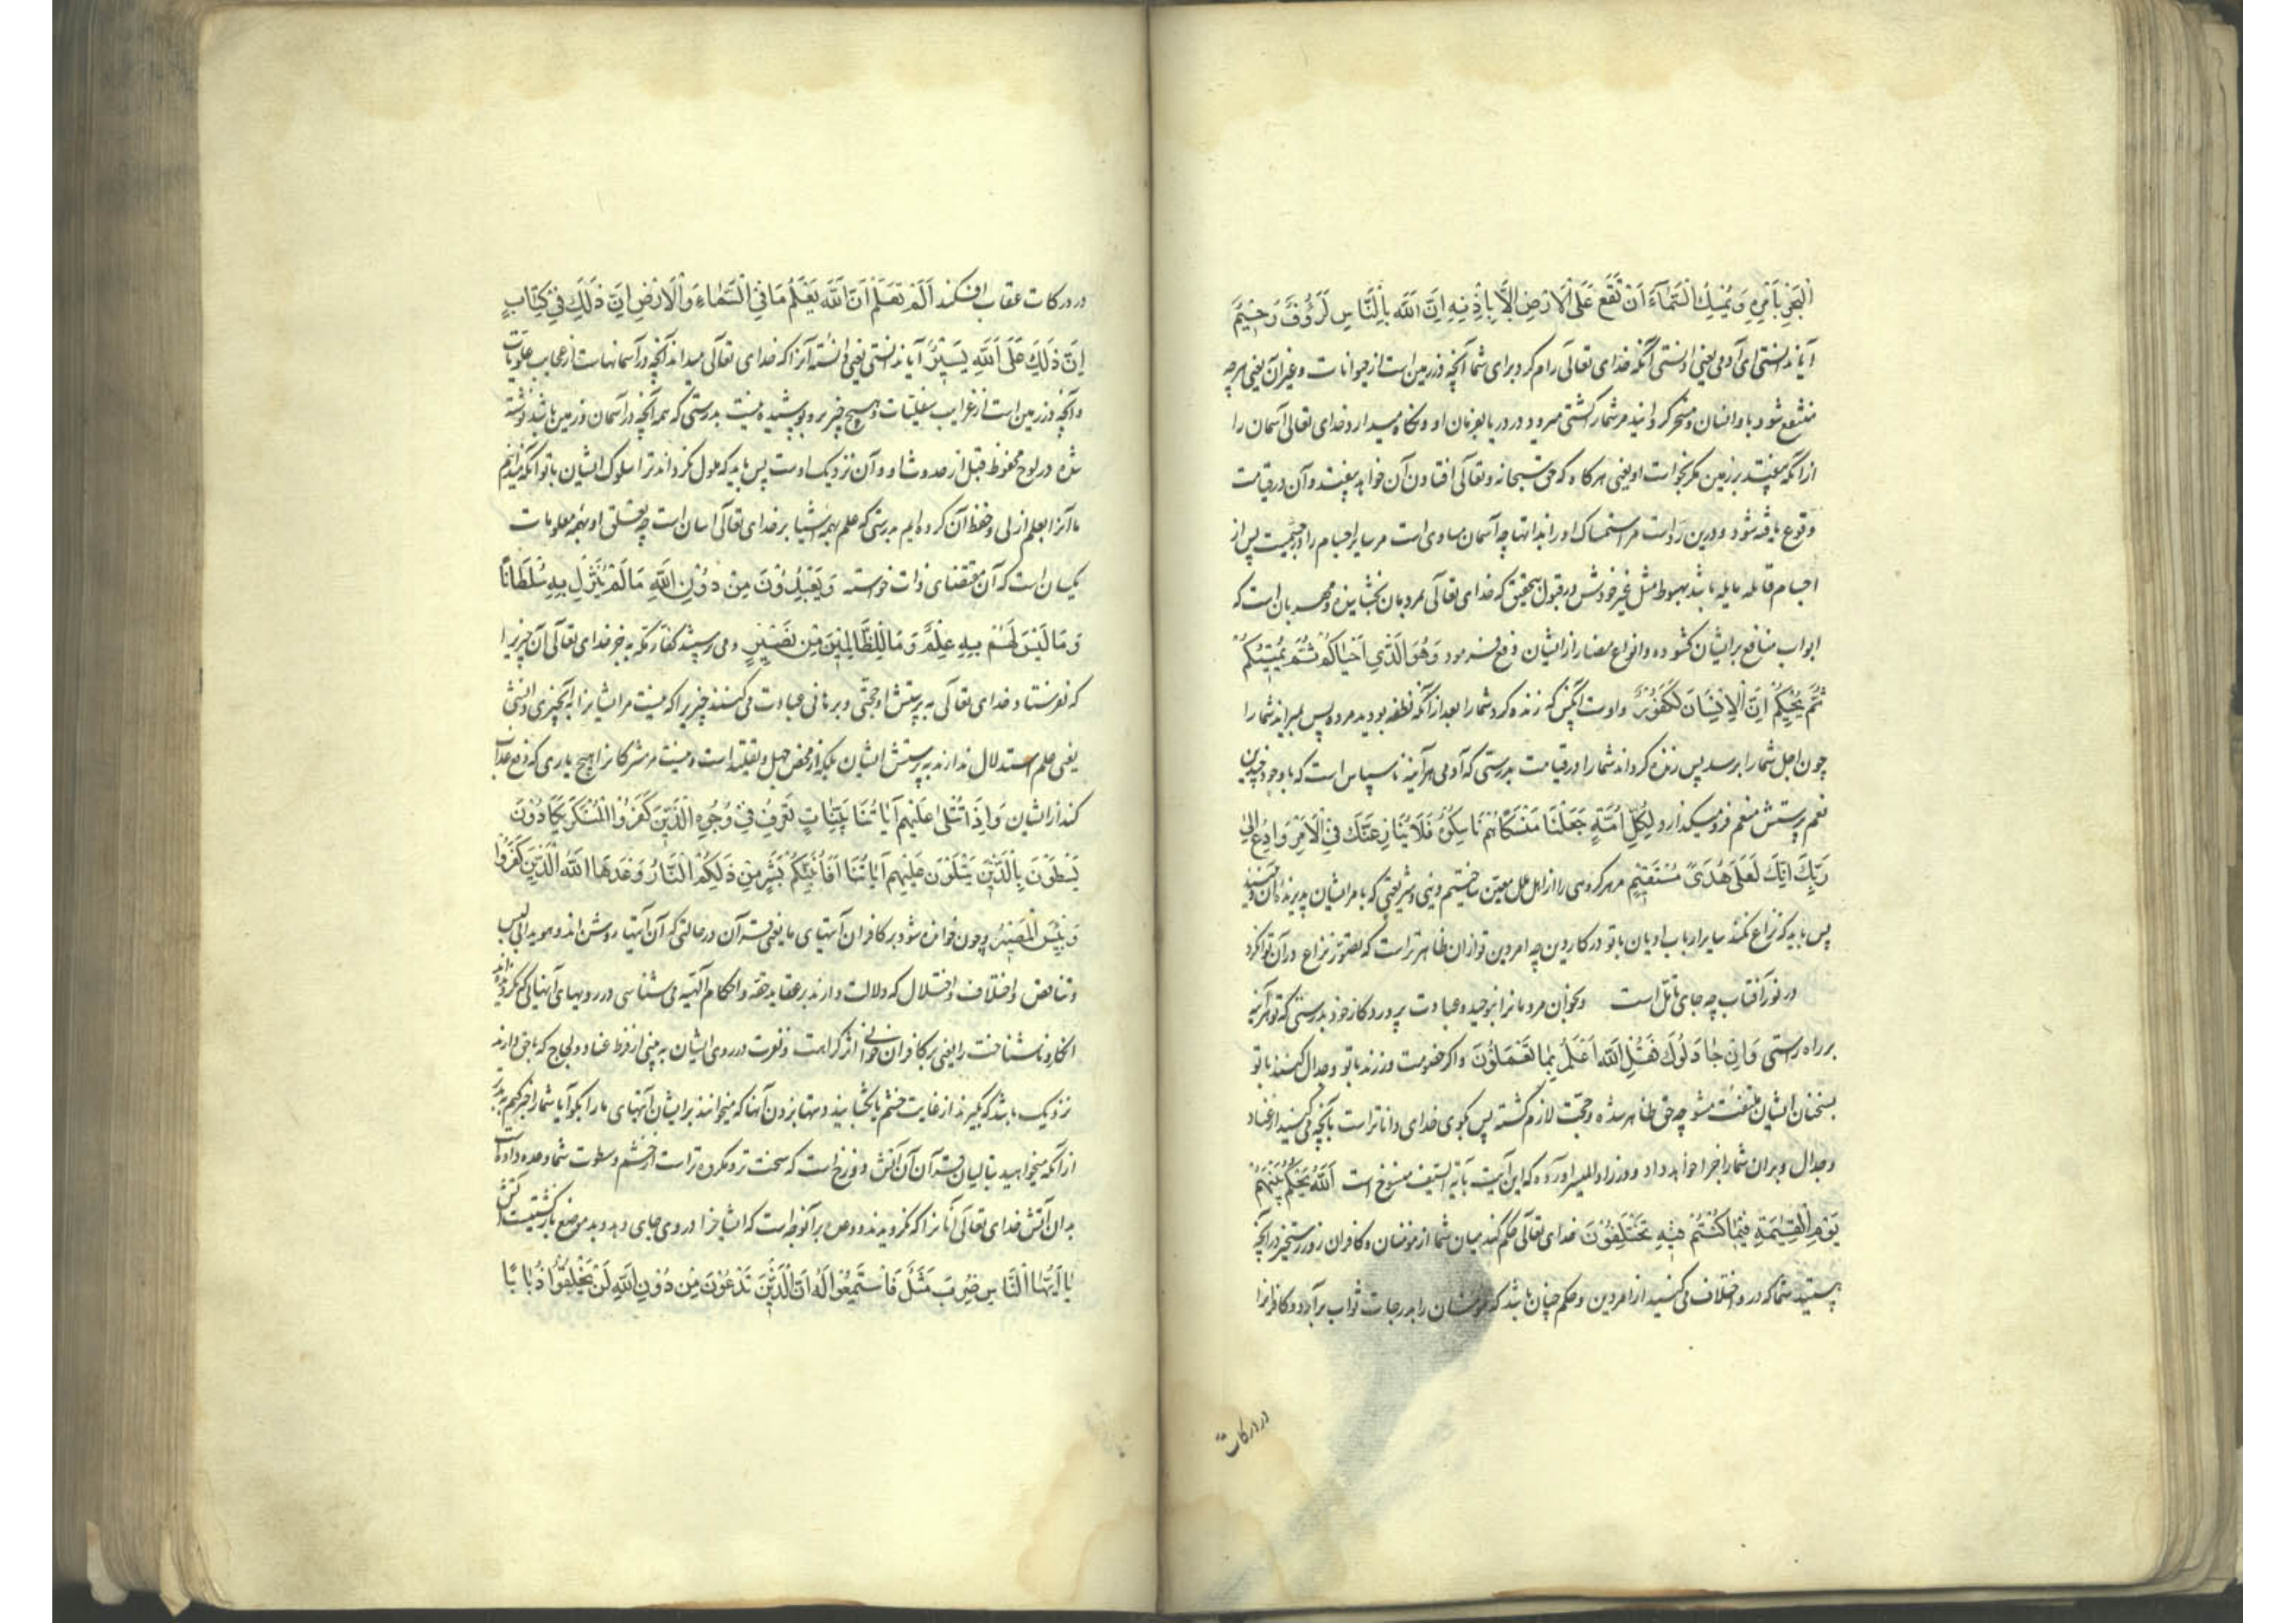 الْبَحْرِ بِاَمْرِهِ وَ يُمْسِكُ السَّمَآءَ اَنْ تَقَعَ عَلَى الْاَرْضِ اِلَّا بِاِذْنِهِ اِنَّ اللّٰهَ بِالنَّاسِ لَرَؤُفٌ رَحِيْمٌ
آیا ندانستی ای آدمی یعنی دانستی آنکه خدای تعالی رام کرد برای شما آنچه در زمین است از حیوانات و غیر آن یعنی هر چه
منتفع شوید باو انسان و مسخر کردانید مر شمار کشتی میرود در دریا بفرمان او و نکاه میدارد خدای تعالی آسمان را
از آنکه بیفتد بر زمین مکر بخواست او یعنی هر کاه که حق سبحانه و تعالی افتادن آن خواهد بیفتد و آن در قیامت
وقوع یافته شود و درین رد است مر استمساک او را بذاتها چه آسمان مساوی است مر سایر اجسام را در جسمیت پس از
اجسام قابله مایله باشد بهبوط مثل غیر خودش در قبول بتحقیق که خدای تعالی بمردمان بخشاینده و مهربان است که
ابواب منافع بر ایشان کشوده و انواع مضار از ایشان دفع فرمود وَهُوَ الَّذِي اَحْيَاكُمْ ثُمَّ يُمِيْتُكُمْ
ثُمَّ يُحْيِيكُمْ اِنَّ الْاِنْسَانَ لَكَفُوْرٌ و اوست آنکس که زنده کرد شما را بعد از آنکه نطفه بودید مرده پس بمیراند شما را
چون اجل شما را برسد پس زنده کرداند شما را در قیامت بدرستی که آدمی هر آینه ناسپاس است که با وجود چندین
نعم پرستش منعم فرو میکذارد لِكُلِّ اُمَّةٍ جَعَلْنَا مَنْسَكًا هُمْ نَاسِكُوْهُ فَلَا يُنَازِعُنَّكَ فِي الْاَمْرِ وَادْعُ اِلٰى
رَبِّكَ اِنَّكَ لَعَلٰى هُدًى مُسْتَقِيْمٍ مر هر کروهی را از اهل ملل معین ساختیم دینی و شریعتی که با مر ایشان پذیرنده آن
پس باید که نزاع نکنند سایر ارباب ادیان با تو در کار دین چه امر دین تو از ان ظاهرتر است که تصور نزاع در آن توان کرد
در نور آفتاب چه جای تأمل است و بخوان مردمانرا بتوحید و عبادت پروردکار خود بدرستی که تو هر آینه
بر راه راستی وَاِنْ جَادَلُوْكَ فَقُلِ اللّٰهُ اَعْلَمُ بِمَا تَعْمَلُوْنَ و اکر خصومت ورزند با تو و جدال کنند با تو
بسخنان ایشان ملتفت مشو چه حق ظاهر شده و حجت لازم کشته پس بکوی خدای داناتر است بآنچه می کنید از عناد
و جدال و بران شما را جزا خواهد داد و در زاد المسیر آورده که این آیت بآیة السیف منسوخ است اَللّٰهُ يَحْكُمُ بَيْنَهُمْ
يَوْمَ الْقِيٰمَةِ فِيْمَا كُنْتُمْ فِيْهِ تَخْتَلِفُوْنَ خدای تعالی حکم کند میان شما از مؤمنان و کافران روز رستخیز در آنچه
هستید شما که در و اختلاف می کنید از امر دین و حکم چنان باشد که مؤمنان را بدرجات ثواب بر آرد و کافرانرا
در درکات
در درکات عقاب افکند اَلَمْ تَعْلَمْ اَنَّ اللّٰهَ يَعْلَمُ مَا فِي السَّمَاءِ وَالْاَرْضِ اِنَّ ذٰلِكَ فِيْ كِتَابٍ
اِنَّ ذٰلِكَ عَلَى اللّٰهِ يَسِيْرٌ آیا ندانستی یعنی دانسته آنرا که خدای تعالی میداند آنچه در آسمانهاست از عجایب علویات
و آنچه در زمین است از غرایب سفلیات و هیچ چیز برو پوشیده نیست بدرستی که همه آنچه در آسمان و زمین باشد نوشته
شده در لوح محفوظ قبل از حدوث او و آن نزدیک اوست پس باید که ملول نکرداند ترا سلوک ایشان با تو آنکه میدانیم
ما آنرا بعلم ازلی و حفظ آن کرده ایم بدرستی که علم بهمه اشیا بر خدای تعالی آسان است چه تعلق او بهمه معلومات
یکسان است که آن مقتضای ذات خوسته وَيَعْبُدُوْنَ مِنْ دُوْنِ اللّٰهِ مَا لَمْ يُنَزِّلْ بِهِ سُلْطَانًا
وَمَا لَيْسَ لَهُمْ بِهِ عِلْمٌ وَمَا لِلظَّالِمِيْنَ مِنْ نَصِيْرٍ و می پرستند کفار مکه بجز خدای تعالی آن چیز را
که نفرستاد خدای تعالی به پرستش او حجتی و برهانی و عبادت می کنند چیزیرا که نیست مر ایشانرا به آنچیزی دانشی
یعنی علم استدلال ندارند به پرستش ایشان بلکه از محض جهل و تقلید است و نیست مر مشرکانرا هیچ یاری که دفع عذاب
کند از ایشان وَاِذَا تُتْلٰى عَلَيْهِمْ اٰيَاتُنَا بَيِّنَاتٍ تَعْرِفُ فِيْ وُجُوْهِ الَّذِيْنَ كَفَرُوا الْمُنْكَرَ يَكَادُوْنَ
يَسْطُوْنَ بِالَّذِيْنَ يَتْلُوْنَ عَلَيْهِمْ اٰيَاتِنَا قُلْ اَفَاُنَبِّئُكُمْ بِشَرٍّ مِنْ ذٰلِكُمُ النَّارُ وَعَدَهَا اللّٰهُ الَّذِيْنَ كَفَرُوْا
وَبِئْسَ الْمَصِيْرُ و چون خوانده شود بر کافران آیتهای ما یعنی قرآن در حالتی که آن آیتها روشن اند و هویدا بی لبس
و تناقض و اختلاف و اختلال که دلالت دارند بر عقاید حقه و احکام الهیه می شناسی در رویهای آنهایی که نکرویده اند
انکار و ناشناخت را یعنی بر کافران خوانی اثر کراهت و نفرت در روی ایشان به بینی از فرط عناد و لجاج که با حق دارند
نزدیک باشد که بگیرند از غایت خشم یا بکشایند دستها بزدن آنها که میخوانند بر ایشان آیتهای ما را بکو آیا شما را خبر کنم به بدتر
از آنکه میخواهید بتالیان قرآن آن آتش دوزخ است که سخت تر و مکروه تر است از خشم و سطوت شما وعده داده است
بدان آتش خدای تعالی آنانرا که نکرویدند و وعده بر آنوجه است که ایشانرا در وی جای دهد و بد موضع بازکشتیست آتش
يَا اَيُّهَا النَّاسُ ضُرِبَ مَثَلٌ فَاسْتَمِعُوْا لَهُ اِنَّ الَّذِيْنَ تَدْعُوْنَ مِنْ دُوْنِ اللّٰهِ لَنْ يَخْلُقُوْا ذُبَابًا